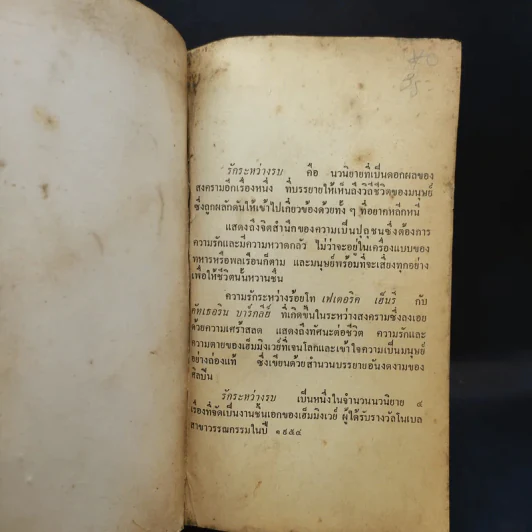 รักระหว่างรบ คือ นวนิยายที่เป็นดอกผลของ
สงครามอีกเรื่องหนึ่ง ที่บรรยายให้เห็นถึงวิถีชีวิตของมนุษย์
ซึ่งถูกผลักดันให้เข้าไปเกี่ยวข้องด้วยทั้ง ๆ ที่อยากหลีกหนี
แสดงถึงจิตสำนึกของความเป็นปุถุชนซึ่งต้องการ
ความรักและมีความหวาดกลัว ไม่ว่าจะอยู่ในเครื่องแบบของ
ทหารหรือพลเรือนก็ตาม และมนุษย์พร้อมที่จะเสี่ยงทุกอย่าง
เพื่อให้ชีวิตนั้นหวานชื่น
ความรักระหว่างร้อยโท เฟเดอริค เฮ็นรี่ กับ
คัทเธอริน บาร์กลีย์ ที่เกิดขึ้นในระหว่างสงครามซึ่งลงเอย
ด้วยความเศร้าสลด แสดงถึงทัศนะต่อชีวิต ความรักและ
ความตายของเฮ็มมิงเวย์ที่เจนโลกและเข้าใจความเป็นมนุษย์
อย่างถ่องแท้ ซึ่งเขียนด้วยสำนวนบรรยายอันงดงามของ
ศิลปิน
รักระหว่างรบ เป็นหนึ่งในจำนวนนวนิยาย ๙
เรื่องที่จัดเป็นงานชั้นเอกของเฮ็มมิงเวย์ ผู้ได้รับรางวัลโนเบล
สาขาวรรณกรรมในปี ๑๙๕๔